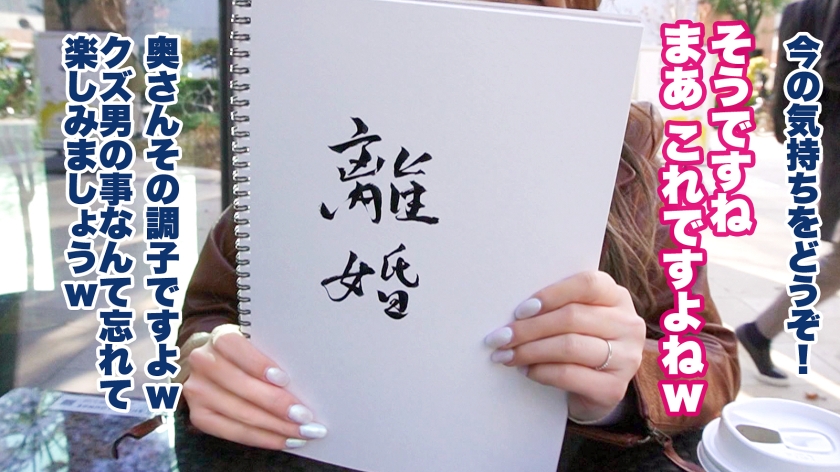 今の気持ちをどうぞ！
そうですね
まあ これですよねw
離
婚
奥さんその調子ですよw
クズ男の事なんて忘れて
楽しみましょうw